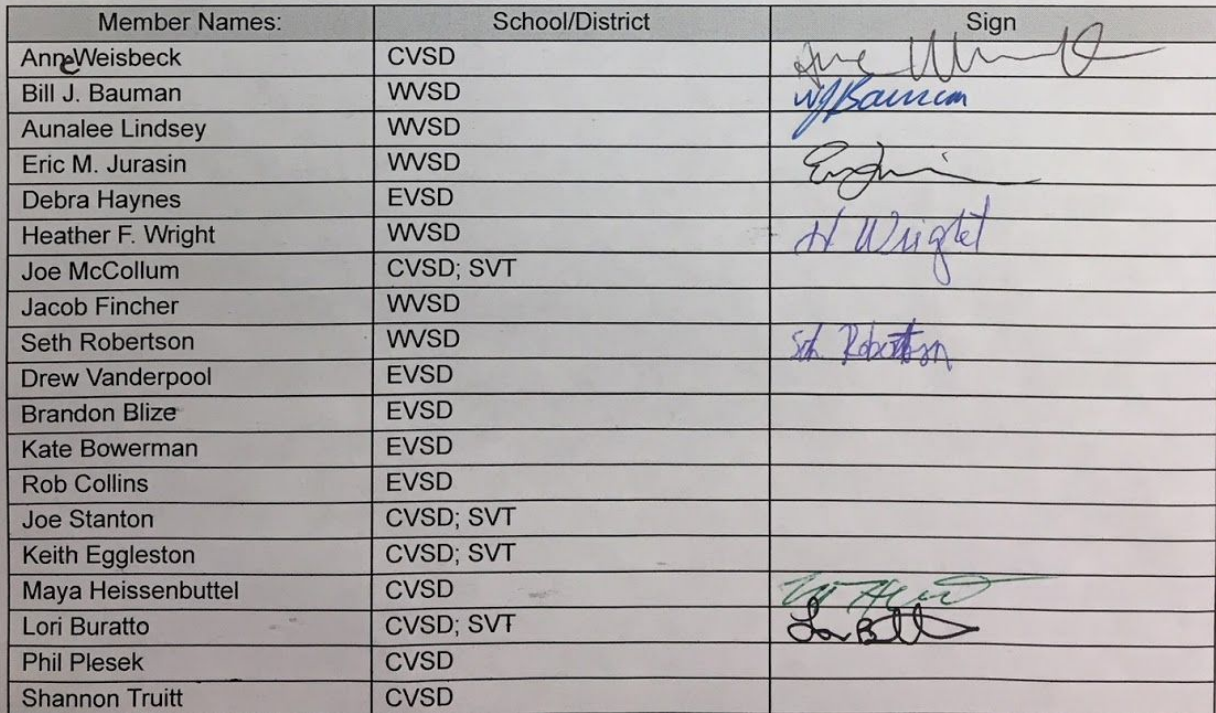 Member Names: School/District Sign
Anne Weisbeck CVSD Anne
Bill J. Bauman WVSD WJBauman
Aunalee Lindsey WVSD
Eric M. Jurasin WVSD
Debra Haynes EVSD
Heather F. Wright WVSD H Wright
Joe McCollum CVSD; SVT
Jacob Fincher WVSD
Seth Robertson WVSD Seth Robertson
Drew Vanderpool EVSD
Brandon Blize EVSD
Kate Bowerman EVSD
Rob Collins EVSD
Joe Stanton CVSD; SVT
Keith Eggleston CVSD; SVT
Maya Heissenbuttel CVSD
Lori Buratto CVSD; SVT
Phil Plesek CVSD
Shannon Truitt CVSD